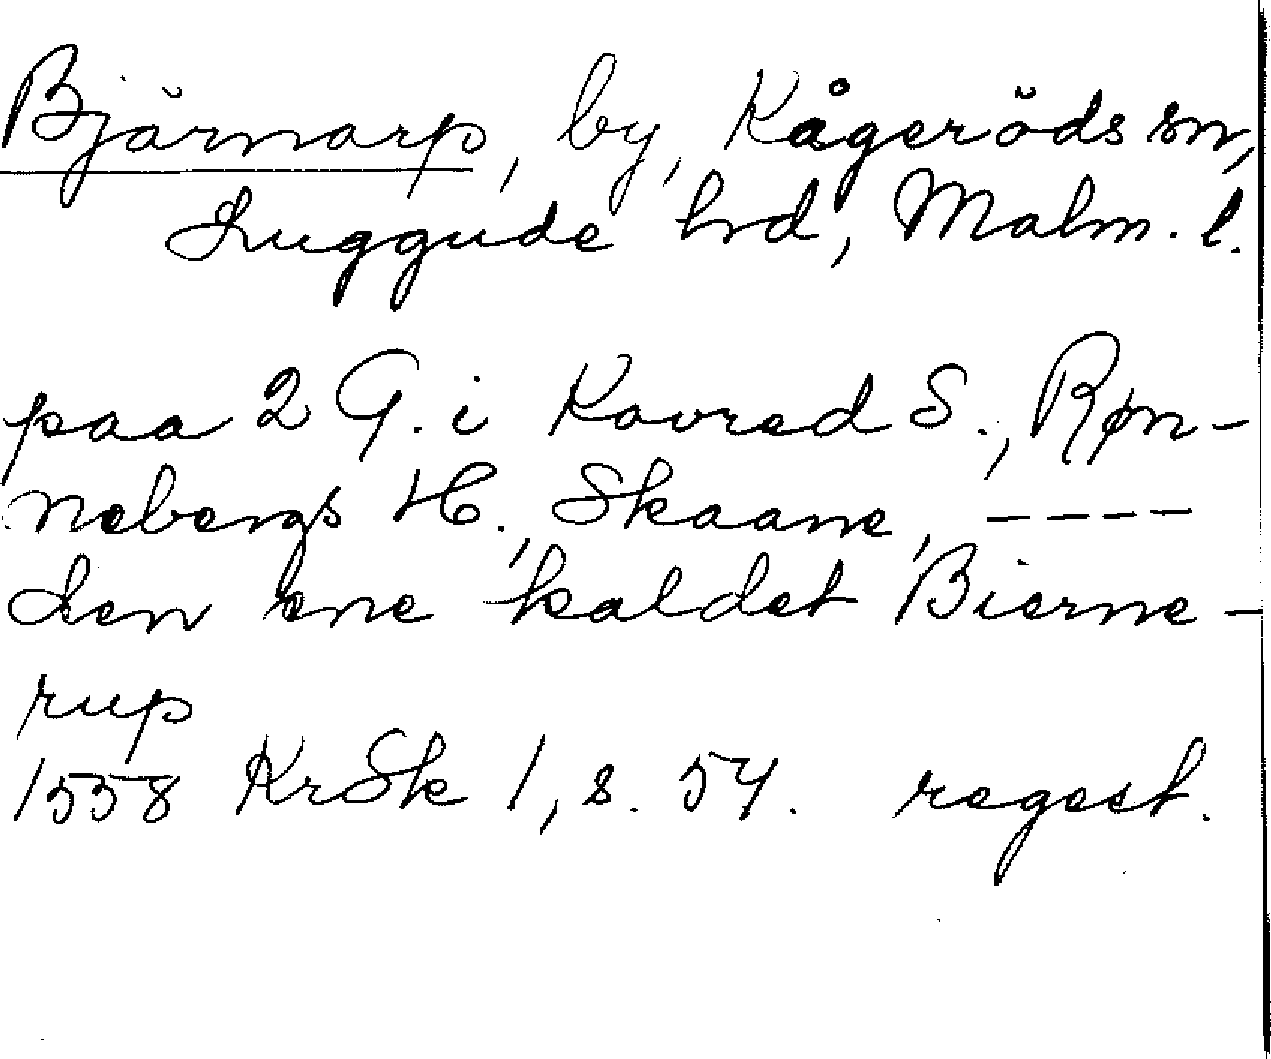 Bjärnarp, by, Kågeröds sn,
Luggude hd, Malm. l.
paa 2 G. i Kovred S., Røn-
nebergs H., Skaane, ----
den ene kaldet Bierne-
rup
1558 KrSk 1, s. 54. regest.